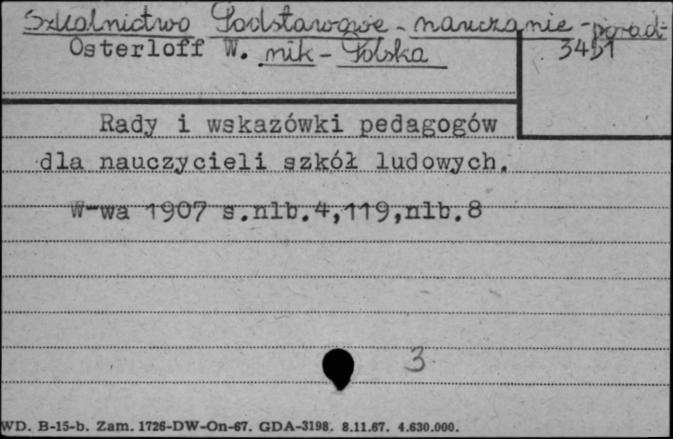 Szkolnictwo Podstawowe - nauczanie - porad-
Osterloff W. nik - Polska 3451
Rady i wskazówki pedagogów
dla nauczycieli szkół ludowych.
W-wa 1907 s.nlb.4,119,nlb.8
3
WD. B-15-b. Zam. 1726-DW-On-67. GDA-3198. 8.11.67. 4.630.000.